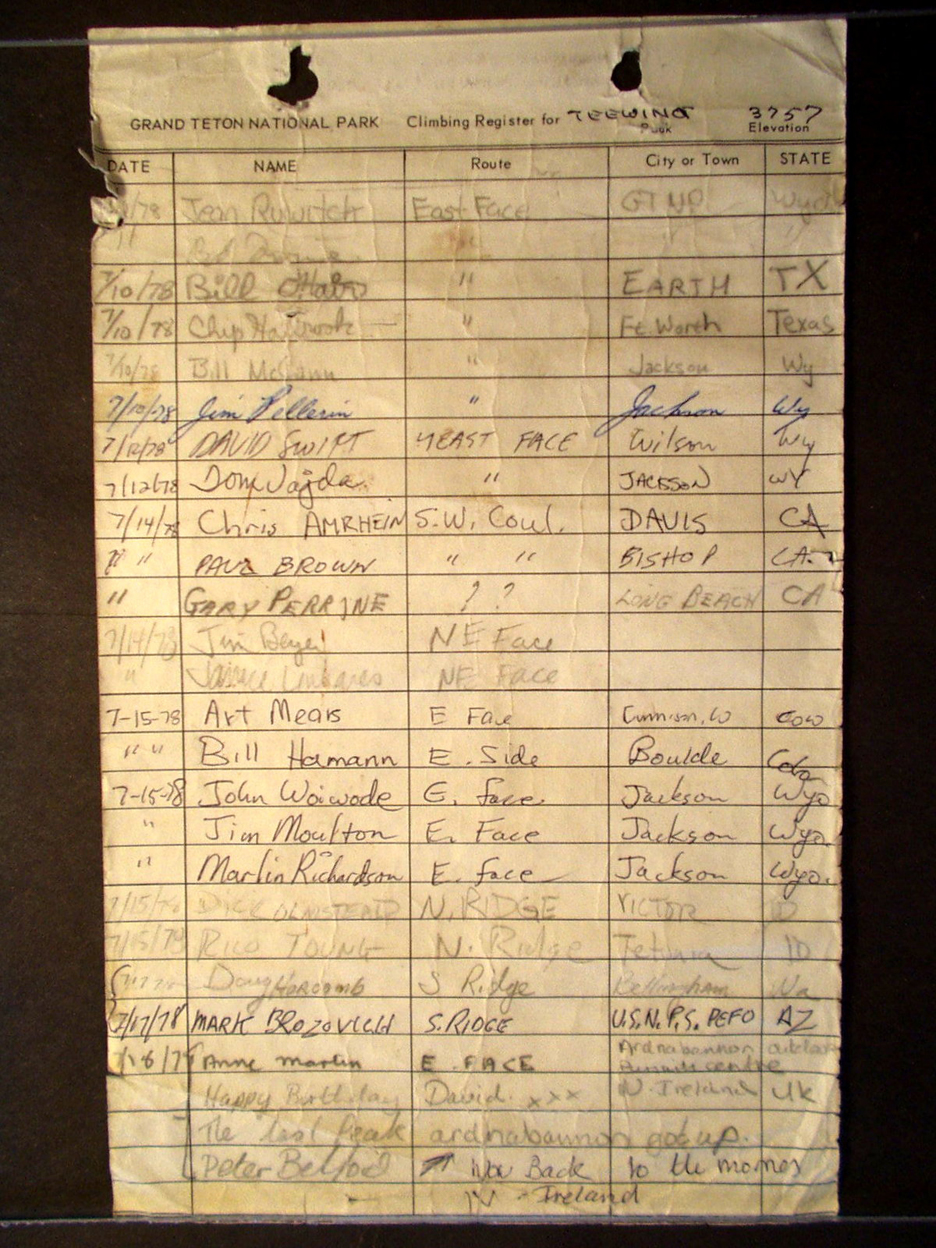 GRAND TETON NATIONAL PARK Climbing Register for TEEWINOT Peak 3757 Elevation
DATE NAME Route City or Town STATE
/78 Jean Ruwitch East Face GTNP Wyo
" " "
7/10/78 Bill " EARTH TX
7/10/78 Chip " Ft. Worth Texas
7/10/78 Bill " Jackson Wy
7/10/78 Jim Pellerin " Jackson Wy
7/12/78 DAVID SWIFT EAST FACE Wilson Wy
7/12/78 Dom Vajda " JACKSON WY
7/14/78 Chris AMRHEIN S.W. Coul. DAVIS CA
" " PAUL BROWN " " BISHOP CA.
" GARY PERRINE ? ? LONG BEACH CA
7/14/78 Jim Beyer NE Face
" NE Face
7-15-78 Art Mears E Face Gunnison, Colo
" " Bill Hamann E. Side Boulde Colo
7-15-78 John Woiwode E. face Jackson Wyo
" Jim Moulton E. Face Jackson Wyo.
" Martin Richardson E. face Jackson Wyo.
7/15/78 DICK OLMSTEAD N. RIDGE VICTOR ID
7/15/78 RICO YOUNG N. Ridge Tetonia ID
Doug S Ridge Bellingham Wa
7/17/78 MARK S. RIDGE U.S.N.P.S. PEFO AZ
7/18/78 Anne Martin E. FACE Ardnabannon
centre
Happy Birthday David. xxx N. Ireland UK
The last peak ardnabannon got up.
Peter Now Back to the mornes
N. Ireland